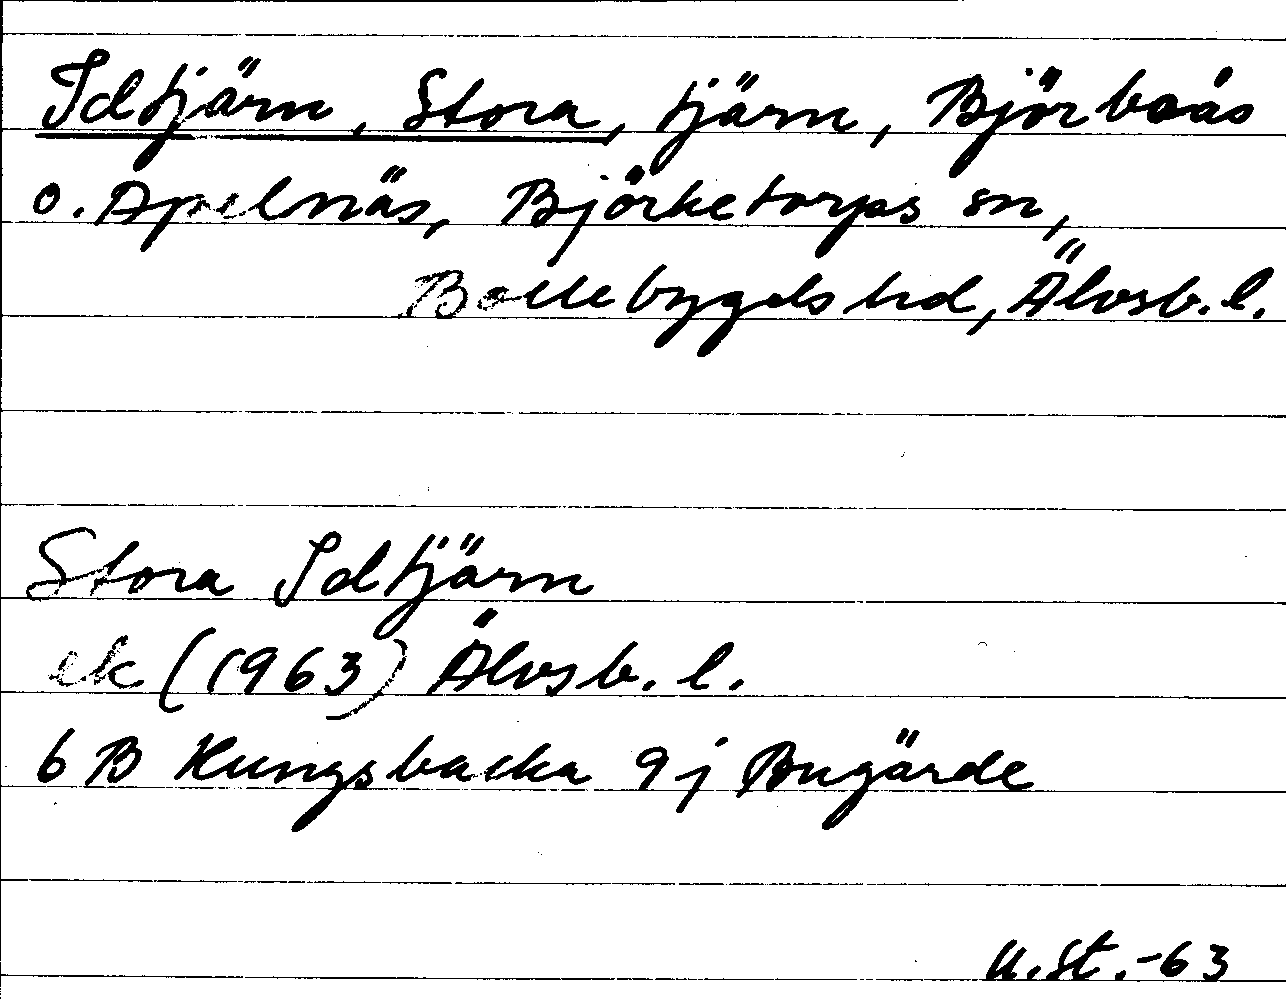 Idtjärn, Stora, tjärn, Björboås
o. Apelnäs, Björketorps sn,
Bollebygds hd, Älvsb. l.
Stora Idtjärn
ek (1963) Älvsb. l.
6 B Kungsbacka 9j Bugärde
U.St.-63